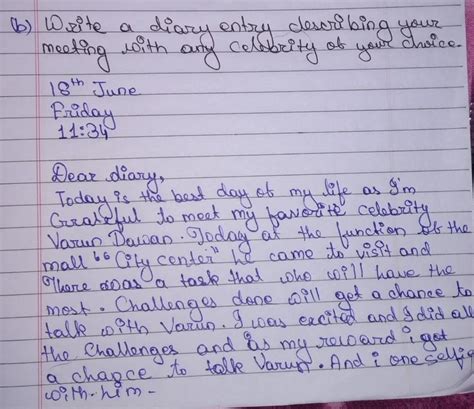 (b) Write a diary entry describing your
meeting with any celebrity of your choice.
18th June
Friday
11:34
Dear diary,
Today is the best day of my life as I'm
Grateful to meet my favorite celebrity
Varun Dawan. Today at the function of the
mall "City center" he came to visit and
There was a task that who will have the
most. Challenges done will get a chance to
talk with Varun. I was excited and I did all
the Challenges and as my reward i got
a chance to talk Varun. And i one selfie
with him -